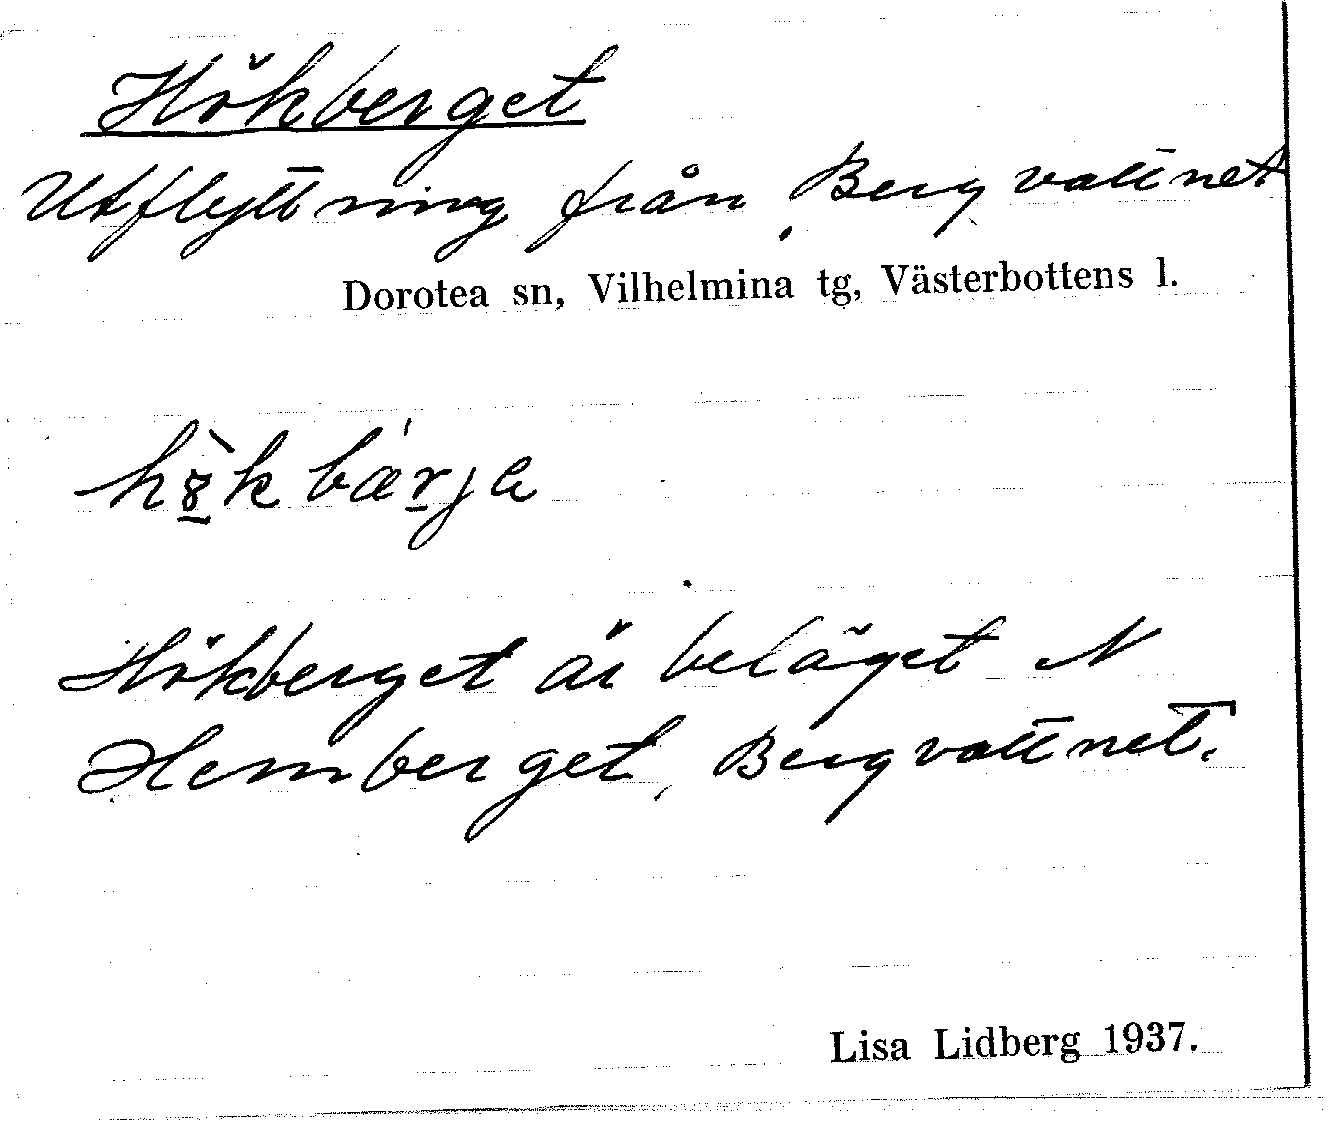 Hökberget
Utflyttning från Bergvattnet
Dorotea sn, Vilhelmina tg, Västerbottens l.
hö̀kbær̲ja
Hökberget är beläget N
Hemberget, Bergvattnet.
Lisa Lidberg 1937.